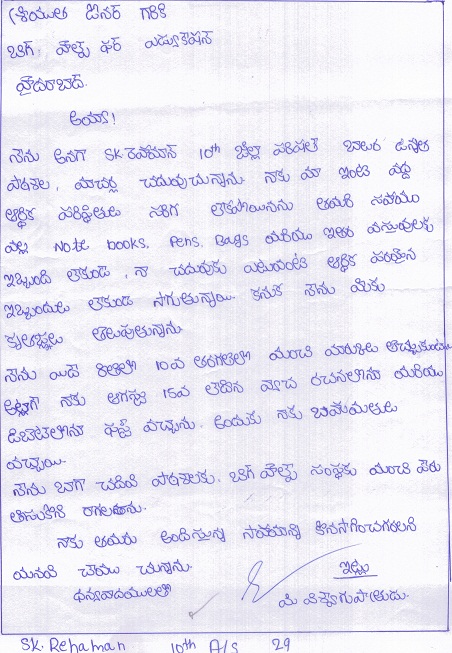 శ్రీయుత డోనర్ గారికి
బిగ్ హెల్ప్ ఫర్ ఎడ్యుకేషన్
హైదరాబాద్.
అయ్యా!
నేను అనగా SK రహెమాన్ 10th జిల్లా పరిషత్ బాలుర ఉన్నత
పాఠశాల, మాచర్ల చదువుచున్నాను నాకు మా ఇంటి వద్ద
ఆర్థిక పరిస్థితులు సరిగ లేకపోయినను తమరి సహాయం
వల్ల Note books, Pens, Bags మరియు ఇతర వస్తువులకు
ఇబ్బంది లేకుండ, నా చదువుకు ఎటువంటి ఆర్థిక పరమైన
ఇబ్బందులు లేకుండ సాగుతున్నాయి. కనుక నేను మీకు
కృతజ్ఞతలు తెలుపుతున్నాను
నేను యిదే రీతిలో 10వ తరగతిలో మంచి మార్కులు తెచ్చుకుంటాను
అట్లాగే నాకు ఆగస్టు 15వ తేదిన వ్యాస రచనలోనూ మరియు
డిబేట్‌లోనూ ఫస్ట్ వచ్చాను. అందుకు నాకు బహుమతులు
వచ్చాయి.
నేను బాగా చదివి పాఠశాలకు, బిగ్ హెల్ప్ సంస్థకు మంచి పేరు
తీసుకొని రాగలను.
నాకు తమరు అందిస్తున్న సహాయాన్ని కొనసాగించగలరని
మనవి చేయు చున్నాను.
ధన్యవాదములతో
ఇట్లు
మీ విశ్వాసపాత్రుడు.
SK. Rehaman 10th A/S 29